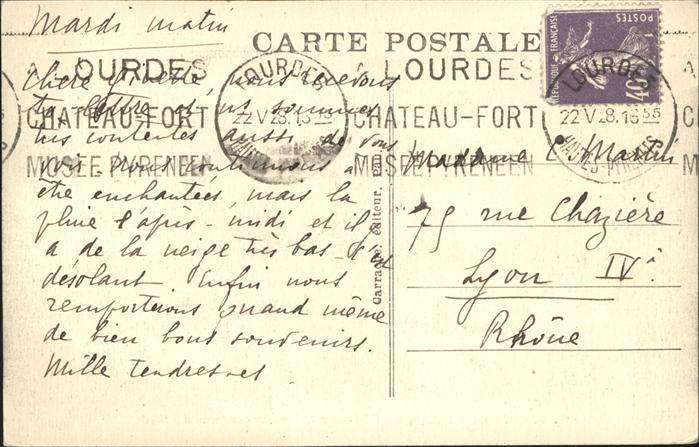 Mardi matin
CARTE POSTALE
RÉPUBLIQUE FRANÇAISE
POSTES
40c
A LOURDES
CHATEAU-FORT
MUSÉE PYRÉNÉEN
LOURDES
22 V 28.1835
HAUTES-PYRÉNÉES
A LOURDES
CHATEAU-FORT
MUSÉE PYRÉNÉEN
LOURDES
22 V 28.1835
HAUTES-PYRÉNÉES
Chère nous recevons
ta lettre et ns sommes
très contentes aussi de vous
Nous continuons à
être enchantées, mais la
pluie l'après-midi et il y
a de la neige très bas - c'est
désolant. Enfin nous
remporterons quand même
de bien bons souvenirs.
Mille tendresses
Carrache, éditeur,
Madame E. Martin
75 rue Chazière
Lyon IVe
Rhône